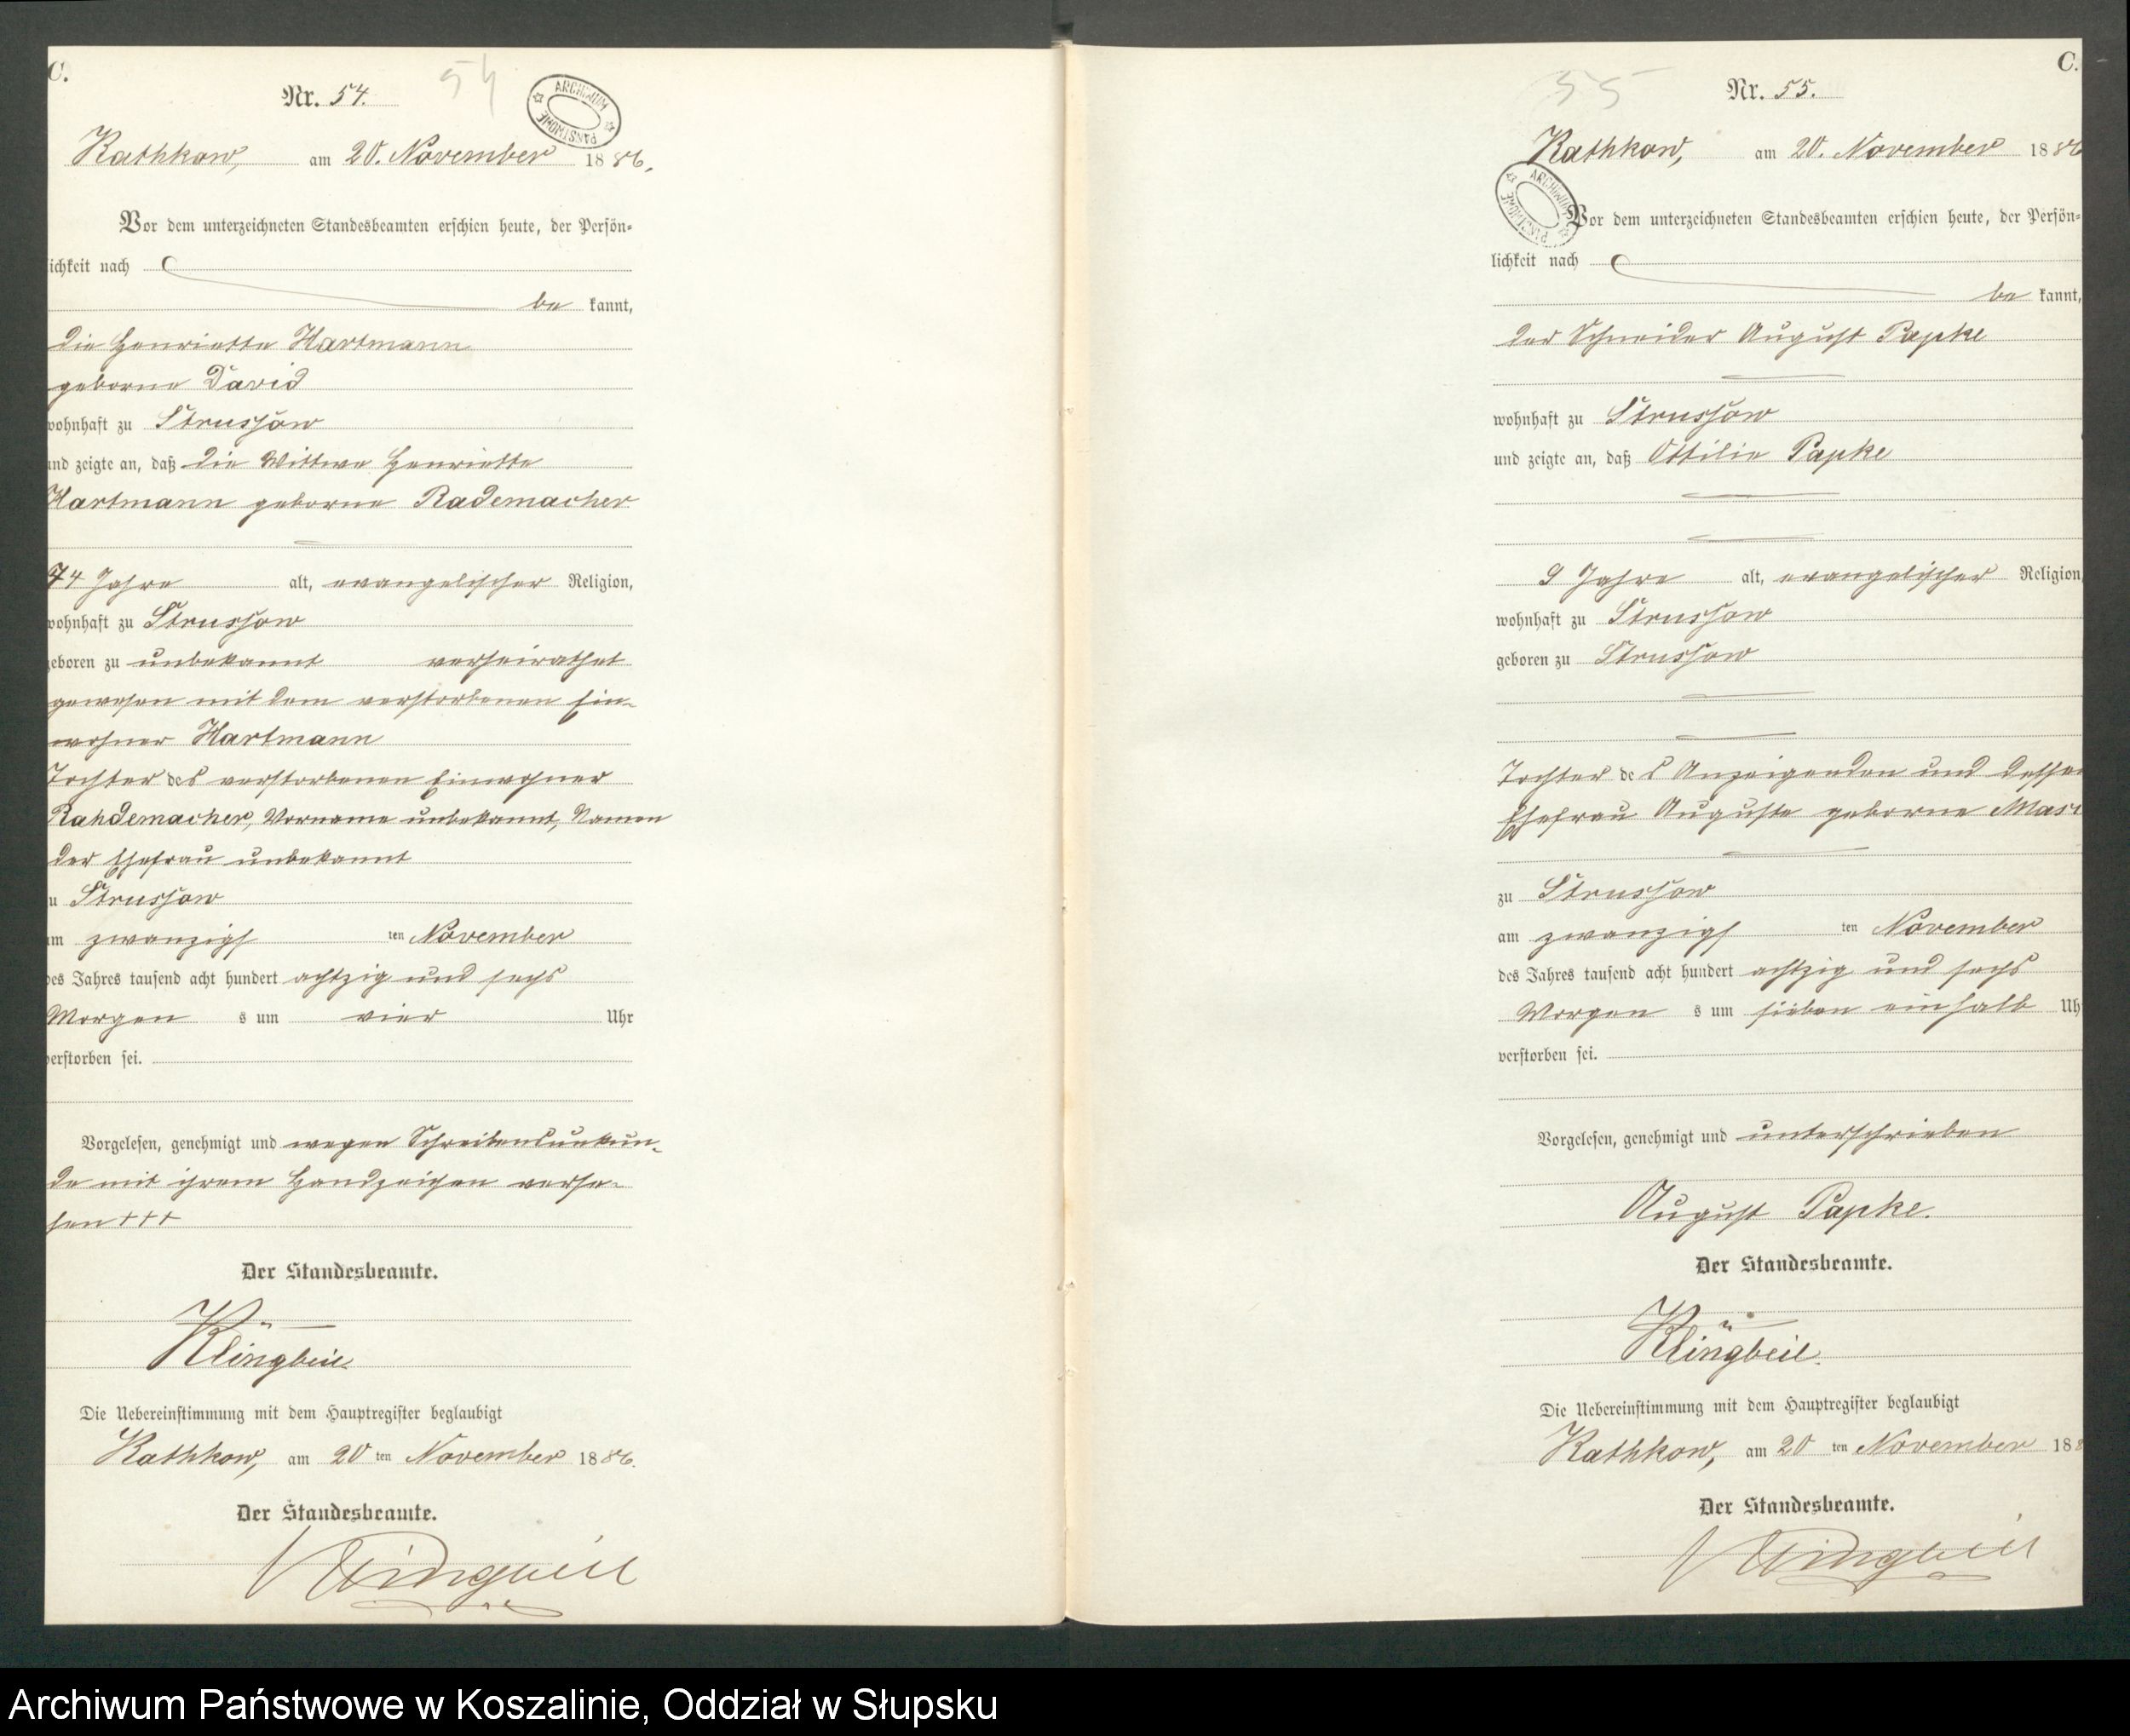 C.
Nr. 54.
54
ARCHIWUM PAŃSTWOWE
Rathkow, am 20. November 1886.
Vor dem unterzeichneten Standesbeamten erschien heute, der Persön-
lichkeit nach
be kannt,
die Henriette Hartmann
geborne David
wohnhaft zu Strussow
und zeigte an, daß die Wittwe Henriette
Hartmann geborne Rademacher
74 Jahre alt, evangelischer Religion,
wohnhaft zu Strussow
geboren zu unbekannt verheirathet
gewesen mit dem verstorbenen Ein-
wohner Hartmann
Tochter des verstorbenen Einwohner
Rahdemacher, Vorname unbekannt, Namen
der Ehefrau unbekannt
zu Strussow
am zwanzigs ten November
des Jahres tausend acht hundert achtzig und sechs
Morgen s um vier Uhr
verstorben sei.
Vorgelesen, genehmigt und wegen Schreibensunkun-
de mit ihrem Handzeichen verse-
hen +++
Der Standesbeamte.
Klingbeil.
Die Uebereinstimmung mit dem Hauptregister beglaubigt
Rathkow, am 20 ten November 1886.
Der Standesbeamte.
Klingbeil
C.
Nr. 55.
55
ARCHIWUM PAŃSTWOWE
Rathkow, am 20. November 1886
Vor dem unterzeichneten Standesbeamten erschien heute, der Persön-
lichkeit nach
be kannt,
der Schneider August Papke
wohnhaft zu Strussow
und zeigte an, daß Ottilie Papke
9 Jahre alt, evangelischer Religion
wohnhaft zu Strussow
geboren zu Strussow
Tochter des Anzeigenden und dessen
Ehefrau Auguste geborne
zu Strussow
am zwanzigs ten November
des Jahres tausend acht hundert achtzig und sechs
Morgen s um sieben einhalb Uh
verstorben sei.
Vorgelesen, genehmigt und unterschrieben
August Papke.
Der Standesbeamte.
Klingbeil.
Die Uebereinstimmung mit dem Hauptregister beglaubigt
Rathkow, am 20 ten November 188
Der Standesbeamte.
Klingbeil
Archiwum Państwowe w Koszalinie, Oddział w Słupsku